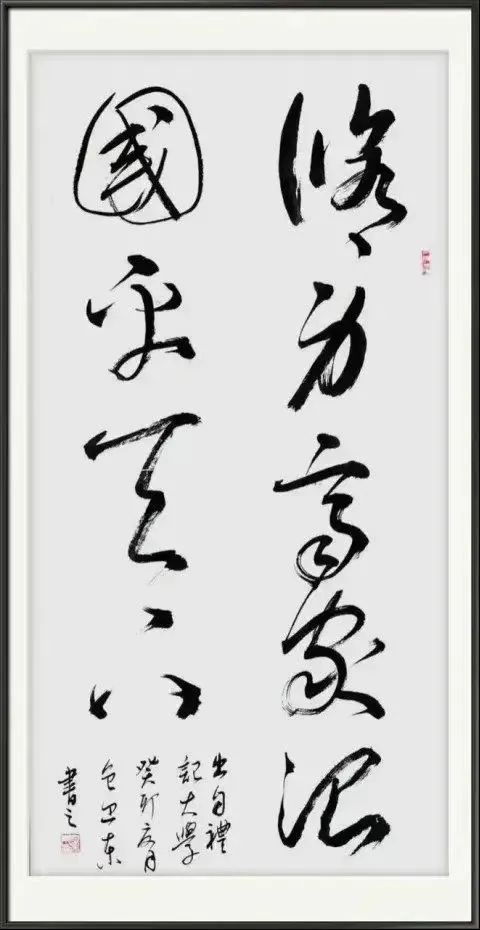 修身齊家治
國平天下
出自禮
記大學
癸卯夏月
書之